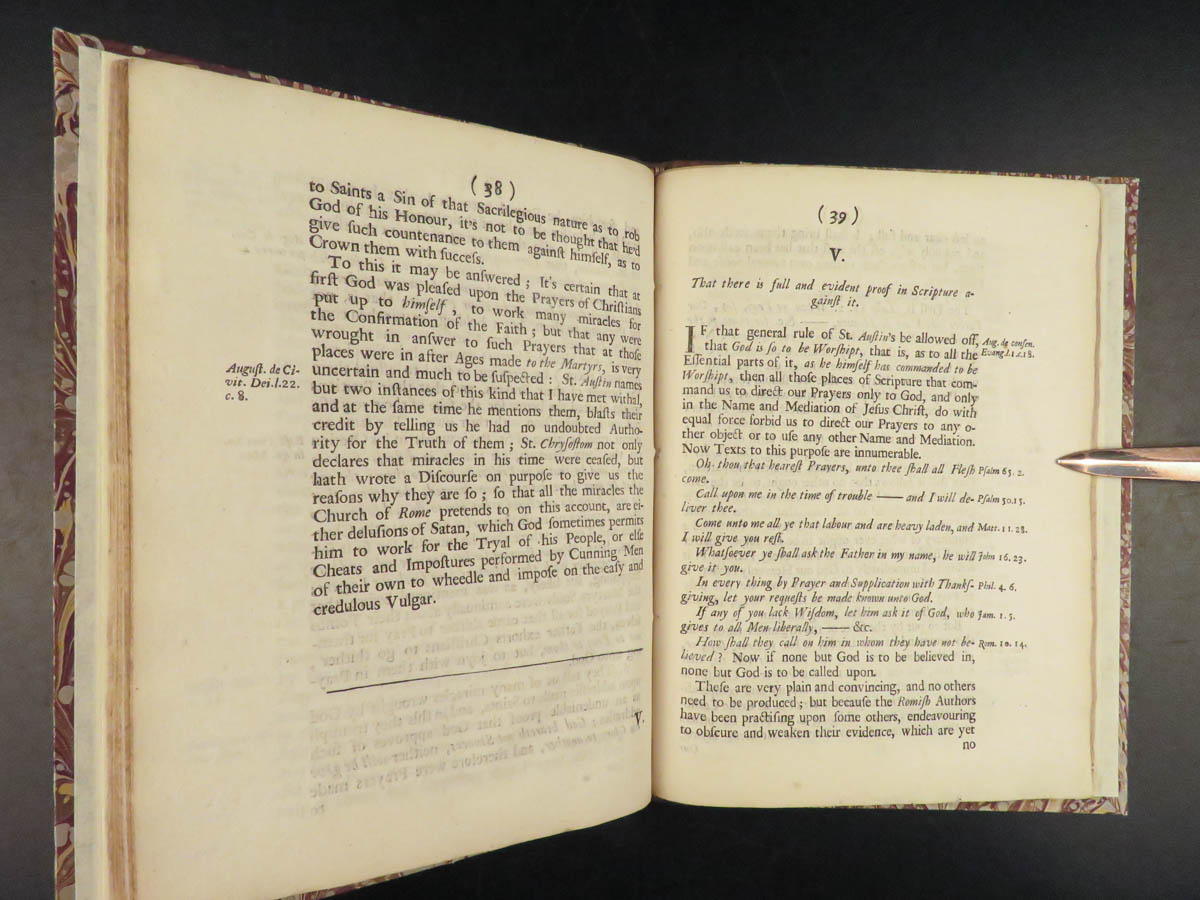 ( 38 )
to Saints a Sin of that Sacrilegious nature as to rob
God of his Honour, it's not to be thought that he'd
give ſuch countenance to them againſt himſelf, as to
Crown them with ſucceſs.
To this it may be anſwered ; It's certain that at
firſt God was pleaſed upon the Prayers of Chriſtians
put up to himſelf , to work many miracles for
the Confirmation of the Faith ; but that any were
wrought in anſwer to ſuch Prayers that at thoſe
places were in after Ages made to the Martyrs, is very
uncertain and much to be ſuſpected : St. Auſtin names
but two inſtances of this kind that I have met withal,
and at the ſame time he mentions them, blaſts their
credit by telling us he had no undoubted Autho-
rity for the Truth of them ; St. Chryſoſtom not only
declares that miracles in his time were ceaſed, but
hath wrote a Diſcourſe on purpoſe to give us the
reaſons why they are ſo ; ſo that all the miracles the
Church of Rome pretends to on this account, are ei-
ther deluſions of Satan, which God ſometimes permits
him to work for the Tryal of his People, or elſe
Cheats and Impoſtures performed by Cunning Men
of their own to wheedle and impoſe on the eaſy and
credulous Vulgar.
Auguſt. de Ci-
vit. Dei.l.22.
c. 8.
V.
( 39 )
V.
That there is full and evident proof in Scripture a-
gainſt it.
IF that general rule of St. Auſtin's be allowed off,
that God is ſo to be Worſhipt, that is, as to all the
Eſſential parts of it, as he himſelf has commanded to be
Worſhipt, then all thoſe places of Scripture that com-
mand us to direct our Prayers only to God, and only
in the Name and Mediation of Jeſus Chriſt, do with
equal force forbid us to direct our Prayers to any o-
ther object or to uſe any other Name and Mediation.
Now Texts to this purpoſe are innumerable.
Aug. de conſen.
Evang.l.1.c.18.
Oh thou that heareſt Prayers, unto thee ſhall all Fleſh Pſalm 65. 2.
come.
Call upon me in the time of trouble —— and I will de- Pſalm 50.15.
liver thee.
Come unto me all ye that labour and are heavy laden, and Matt. 11. 28.
I will give you reſt.
Whatſoever ye ſhall ask the Father in my name, he will John 16. 23.
give it you.
In every thing by Prayer and Supplication with Thankſ- Phil. 4. 6.
giving, let your requeſts be made known unto God.
If any of you lack Wiſdom, let him ask it of God, who Jam. 1. 5.
gives to all Men liberally, —— &c.
How ſhall they call on him in whom they have not be- Rom. 10. 14.
lieved ? Now if none but God is to be believed in,
none but God is to be called upon.
Theſe are very plain and convincing, and no others
need to be produced ; but becauſe the Romiſh Authors
have been practiſing upon ſome others, endeavouring
to obſcure and weaken their evidence, which are yet
no